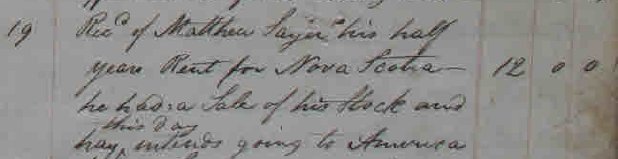 19 Recd of Matthew Sayer his half
years Rent for Nova Scotia — 12 0 0
he had a Sale of his Stock and
this day
hay, intends going to America